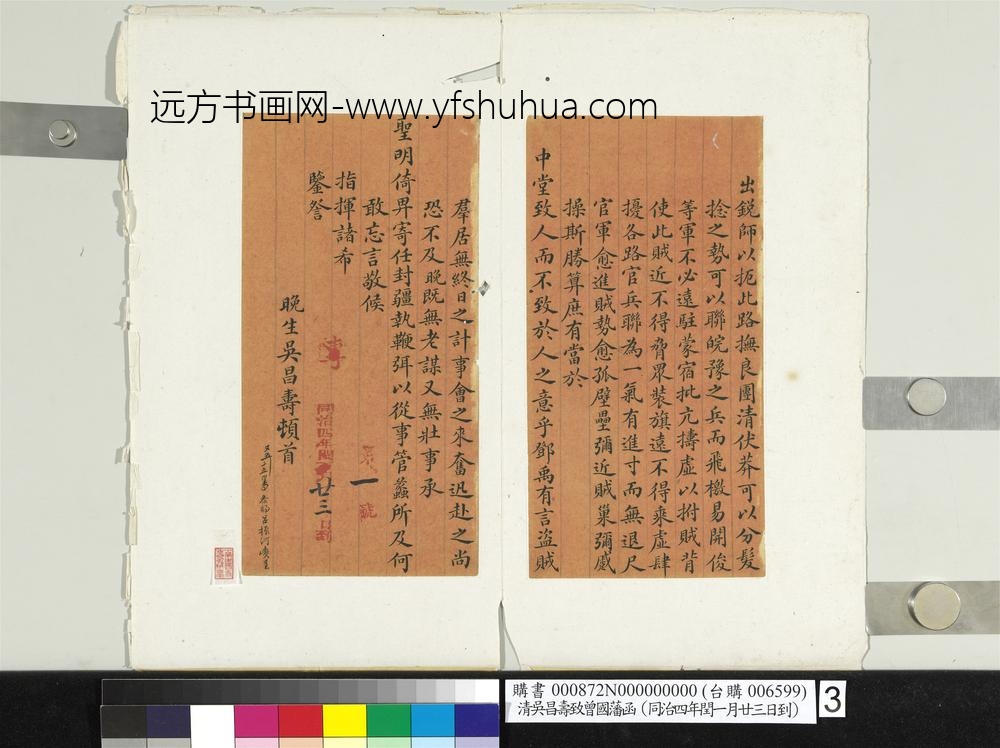 远方书画网-www.yfshuhua.com
出銳師以扼此路撫良團清伏莽可以分髮
捻之勢可以聯皖豫之兵而飛檄易開俊
等軍不必遠駐蒙宿批亢擣虛以拊賊背
使此賊近不得脅眾裝旗遠不得乘虛肆
擾各路官兵聯為一氣有進寸而無退尺
官軍愈進賊勢愈孤壁壘彌近賊巢彌蹙
操斯勝算庶有當於
中堂致人而不致於人之意乎鄧禹有言盜賊
羣居無終日之計事會之來奮迅赴之尚
恐不及晚既無老謀又無壯事承
聖明倚畀寄任封疆執鞭弭以從事管蠡所及何
敢忘言敬候
指揮諸希
鑒詧
晚生吳昌壽頓首
一
號
同治四年
廿三
日到
購書 000872N000000000 (台購 006599)
清吳昌壽致曾國藩函（同治四年閏一月廿三日到）
3